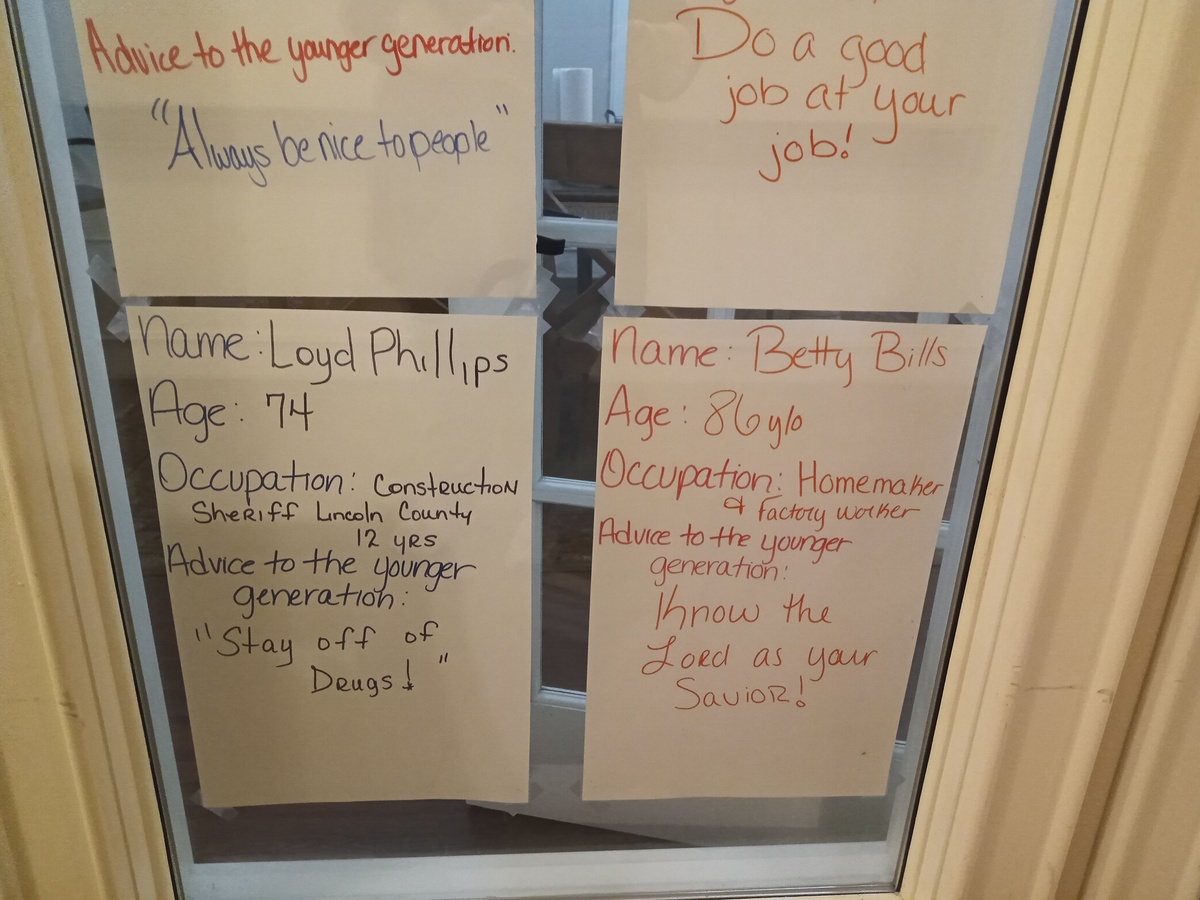 Advice to the younger generation.
"Always be nice to people"
Do a good
job at your
job!
Name: Loyd Phillips
Age: 74
Occupation: Construction
Sheriff Lincoln County
12 yrs
Advice to the younger
generation:
"Stay off of
Drugs!"
Name: Betty Bills
Age: 86 y/o
Occupation: Homemaker
& factory worker
Advice to the younger
generation:
Know the
Lord as your
Savior!